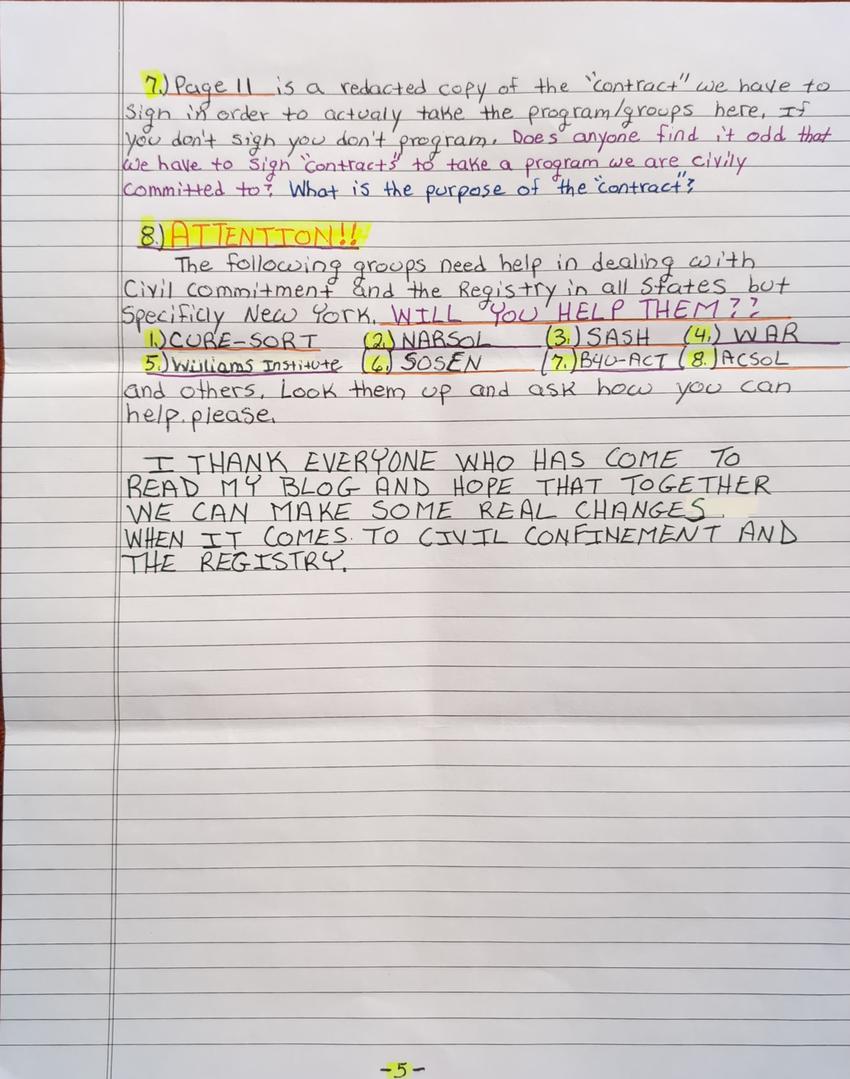 7.) Page 11 is a redacted copy of the "contract" we have to
sign in order to actualy take the program/groups here, If
you don't sign you don't program. Does anyone find it odd that
we have to sign "contracts" to take a program we are civily
committed to? What is the purpose of the "contract"?
8.) ATTENTION!!
The following groups need help in dealing with
Civil commitment and the Registry in all states but
specificly New York. WILL YOU HELP THEM??
1.) CURE-SORT (2.) NARSOL (3.) SASH (4.) WAR
5.) Williams Institute (6.) SOSEN (7.) B4U-ACT (8.) ACSOL
and others. Look them up and ask how you can
help.please.
I THANK EVERYONE WHO HAS COME TO
READ MY BLOG AND HOPE THAT TOGETHER
WE CAN MAKE SOME REAL CHANGES
WHEN IT COMES. TO CIVIL CONFINEMENT AND
THE REGISTRY.
-5-